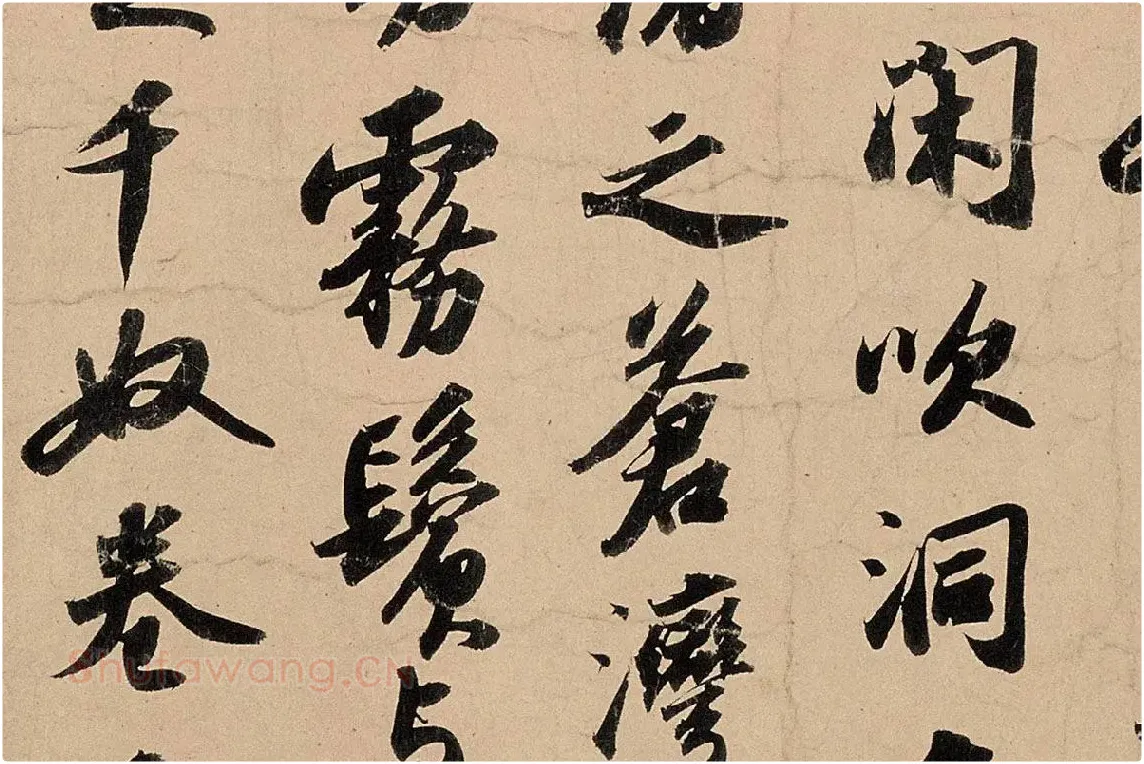 閑吹洞
之蒼灣
霧鬢与
千奴卷
Shufawang.CN